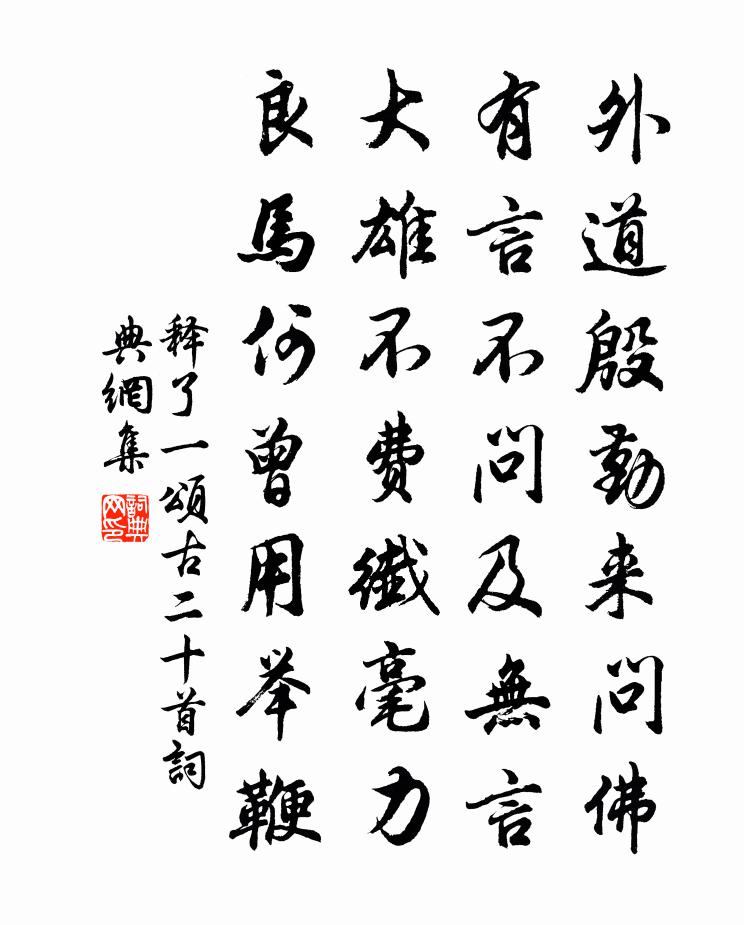 外道殷勤来问佛
有言不问及無言
大雄不费纖毫力
良馬何曾用举鞭
释了一頌古二十首詞
典網集
詞典网印